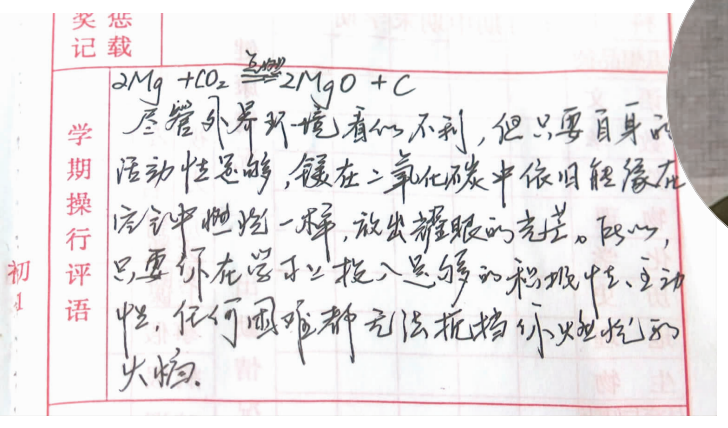 奖惩
记载
学期操行评语
初1
2Mg + CO₂ 点燃 2MgO + C
尽管外界环境看似不利，但只要自身的
活动性足够，镁在二氧化碳中依旧能像在
空气中燃烧一样，放出耀眼的光芒。所以，
只要你在学习上投入足够的积极性、主动
性，任何困难都无法抵挡你燃烧的
火焰。